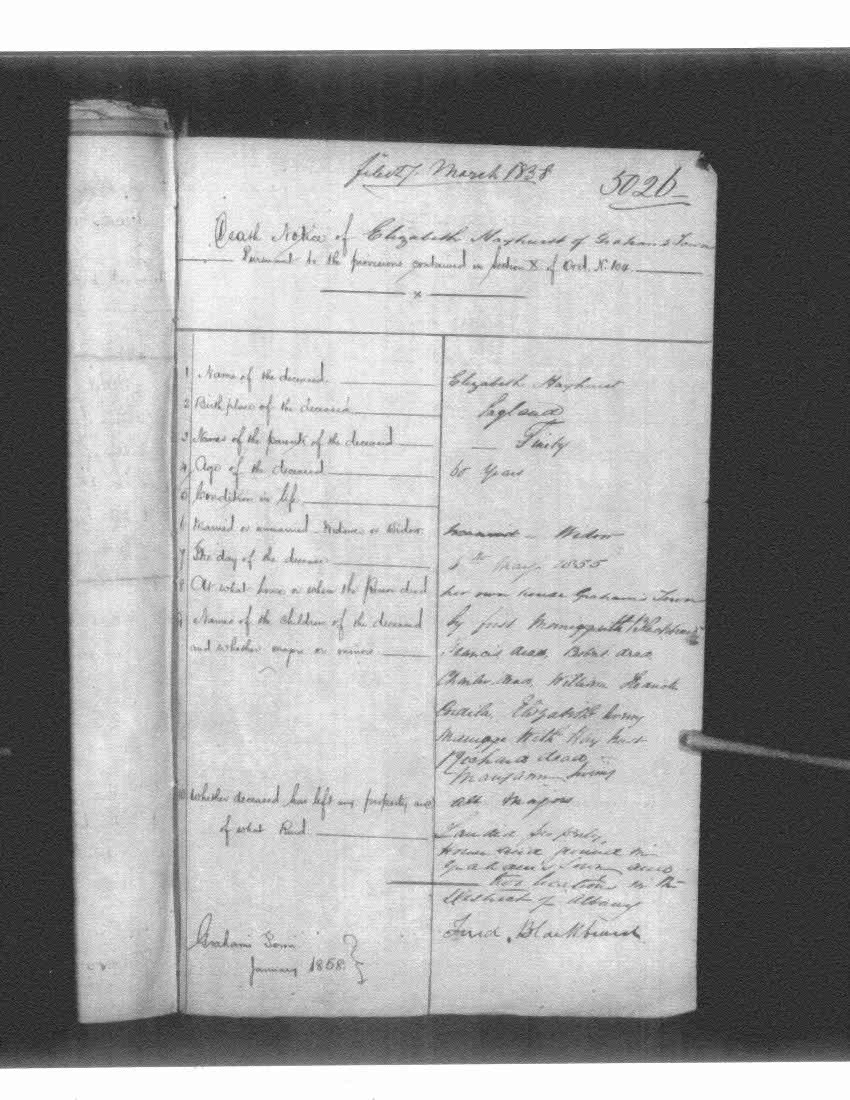 filed 7 March 1858
5026
Death Notice of Elizabeth Hayhurst of Grahams Town
Pursuant to the provisions contained in Section X of Ord. No. 104
x
1 Name of the deceased Elizabeth Hayhurst
2 Birth place of the deceased England
3 Names of the parents of the deceased
4 Age of the deceased 60 years
5 Condition in life
6 Married or unmarried Widower or Widow Widow
7 The day of the decease 6th May 1855
8 At what house or where the Person died her own house Grahams Town
9 Names of the children of the deceased by first
and whether major or minor Francis dead
Charles dead William
Elizabeth living
Marriage with Hayhurst
Richard dead
Maryann living
all majors
10 Whether deceased has left any property and
of what kind Landed Property
House and ground in
Grahams Town and
in the
District of Albany
Grahams Town
January 1858
Fred. Blackbeard